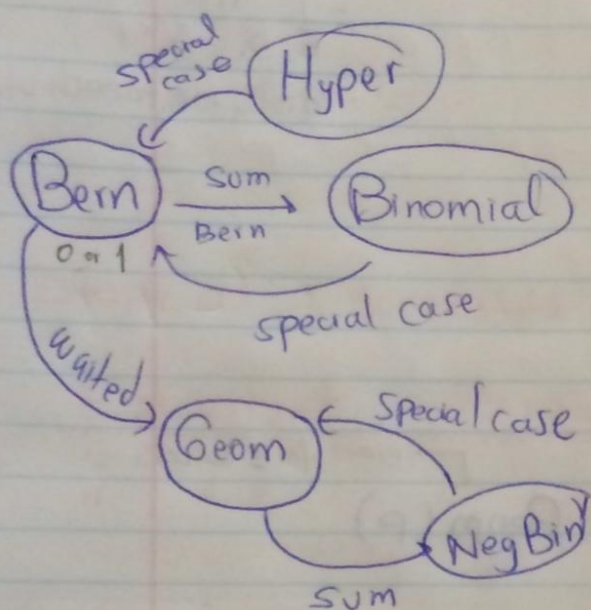 special
case
Hyper
Bern
Sum
Bern
Binomial
0 or 1
special case
waited
Geom
special case
NegBin
sum